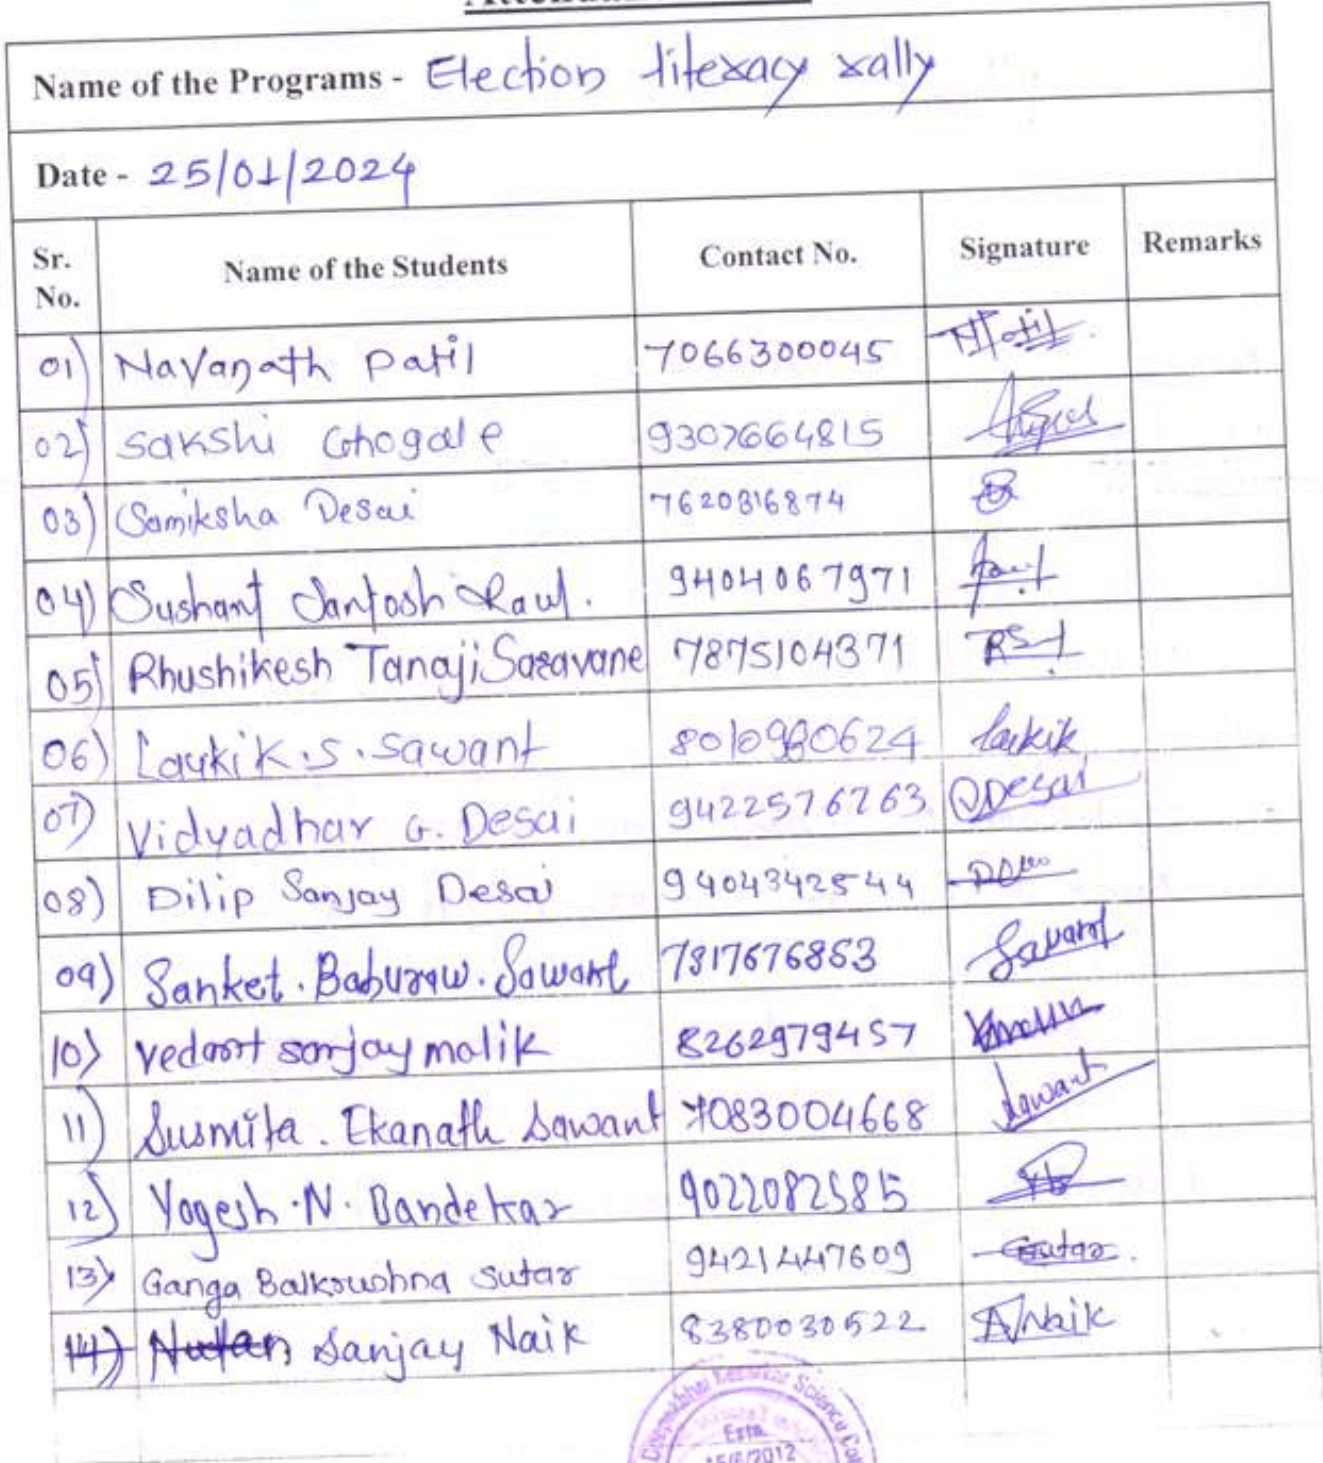 Name of the Programs - Election literacy rally
Date - 25/01/2024
Sr. No. Name of the Students Contact No. Signature Remarks
01) Navanath Patil 7066300045 NPatil.
02) Sakshi Ghogale 9307664815
03) Samiksha Desai 7620816874
04) Sushant Santosh Raul. 9404067971
05) Rhushikesh Tanaji Saravane 7875104371
06) Laukik.S.Sawant 8010980624 laukik
07) Vidyadhar G. Desai 9422576763 Desai
08) Dilip Sanjay Desai 9404342544
09) Sanket.Baburaw.Sawant 7817676853 Sawant
10) vedant sanjay malik 8262979457
11) Susmita. Ekanath Sawant 7083004668 Sawant
12) Yogesh.N. Bandekar 9022082585
13) Ganga Balkrushna Sutar 9421447609 Sutar.
14) Nutan Sanjay Naik 8380030522 Naik
Deepakbhai Kesarkar Science
Estd.
15/6/2012